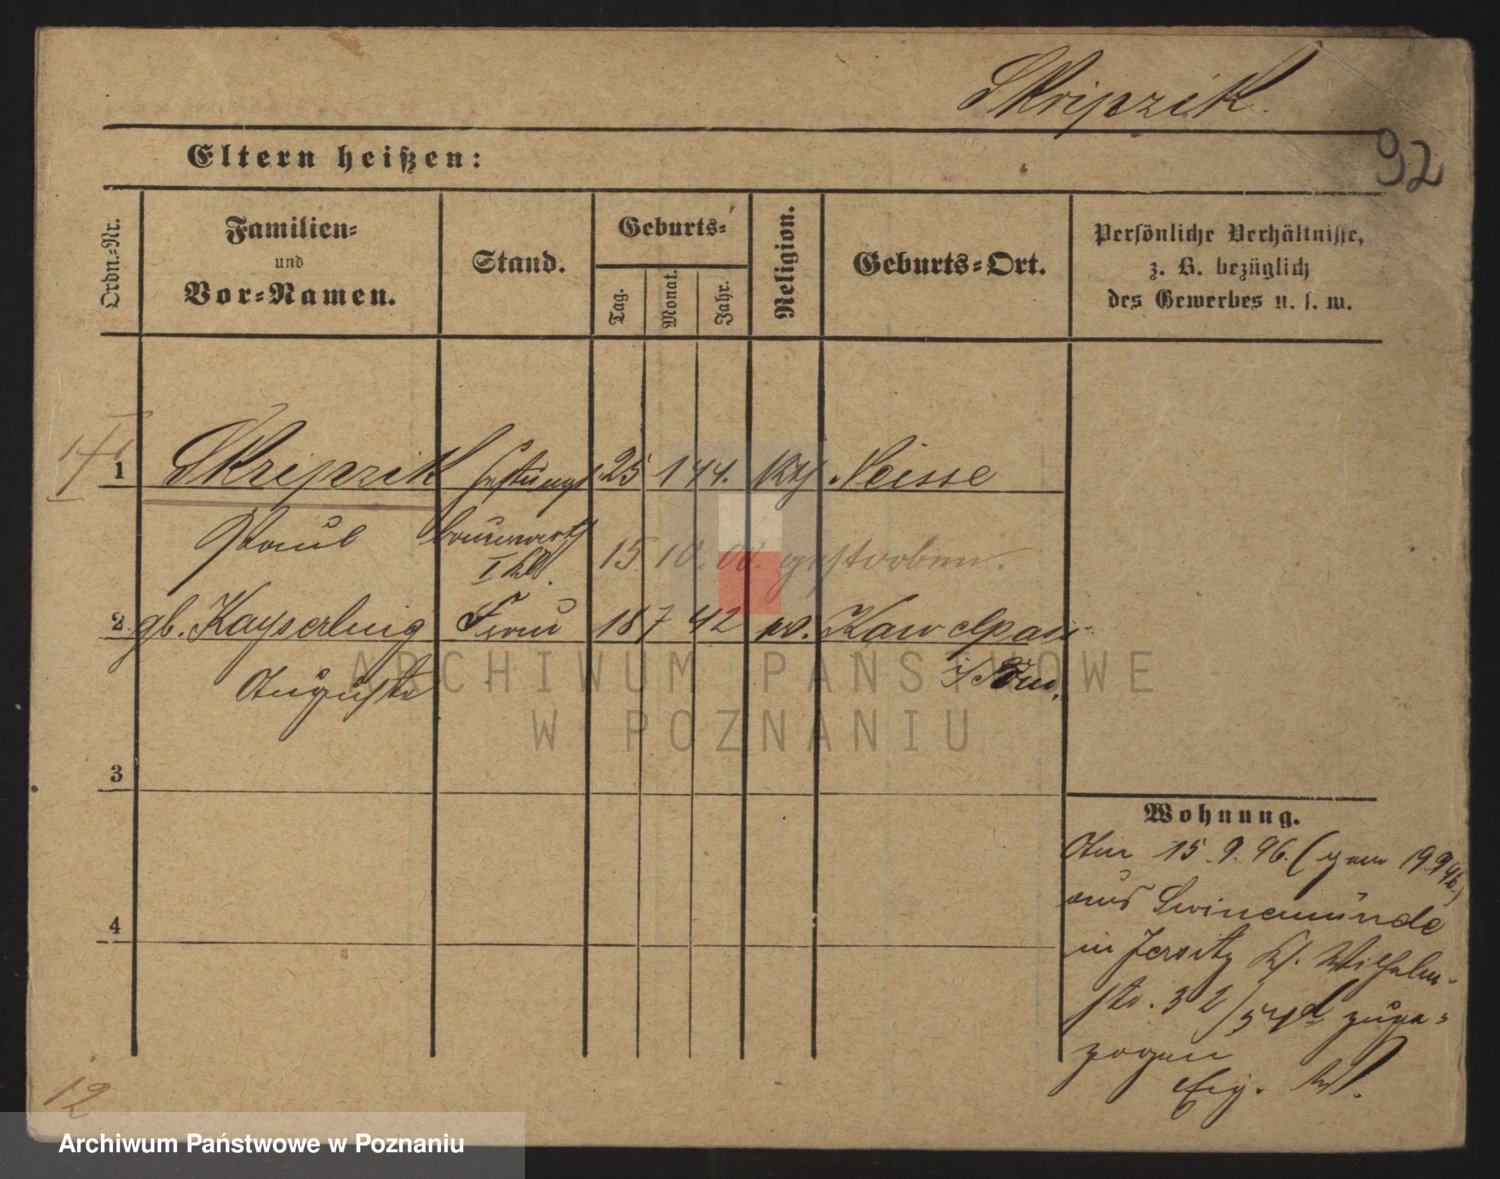 Skripzik.
92
Eltern heißen:
Ordn.-Nr.
Familien-
und
Vor-Namen.
Stand.
Geburts-
Tag.
Monat.
Jahr.
Religion.
Geburts-Ort.
Persönliche Verhältnisse,
z. B. bezüglich
des Gewerbes u. s. w.
1 Skripzik Festungs 25 1 44. kth Neisse
Paul bauwart
I Kl.
15 10. 00. gestorben.
2 gb. Kayserling Frau 18 7 42 ev.
Auguste
3
4
Wohnung.
Am 15.9.96. (gem 19.9.96.)
aus Swinemünde
in Jersitz Kl. Wilhelm-
str. 32 zuge-
zogen
12
ARCHIWUM PAŃSTWOWE
W POZNANIU
Archiwum Państwowe w Poznaniu